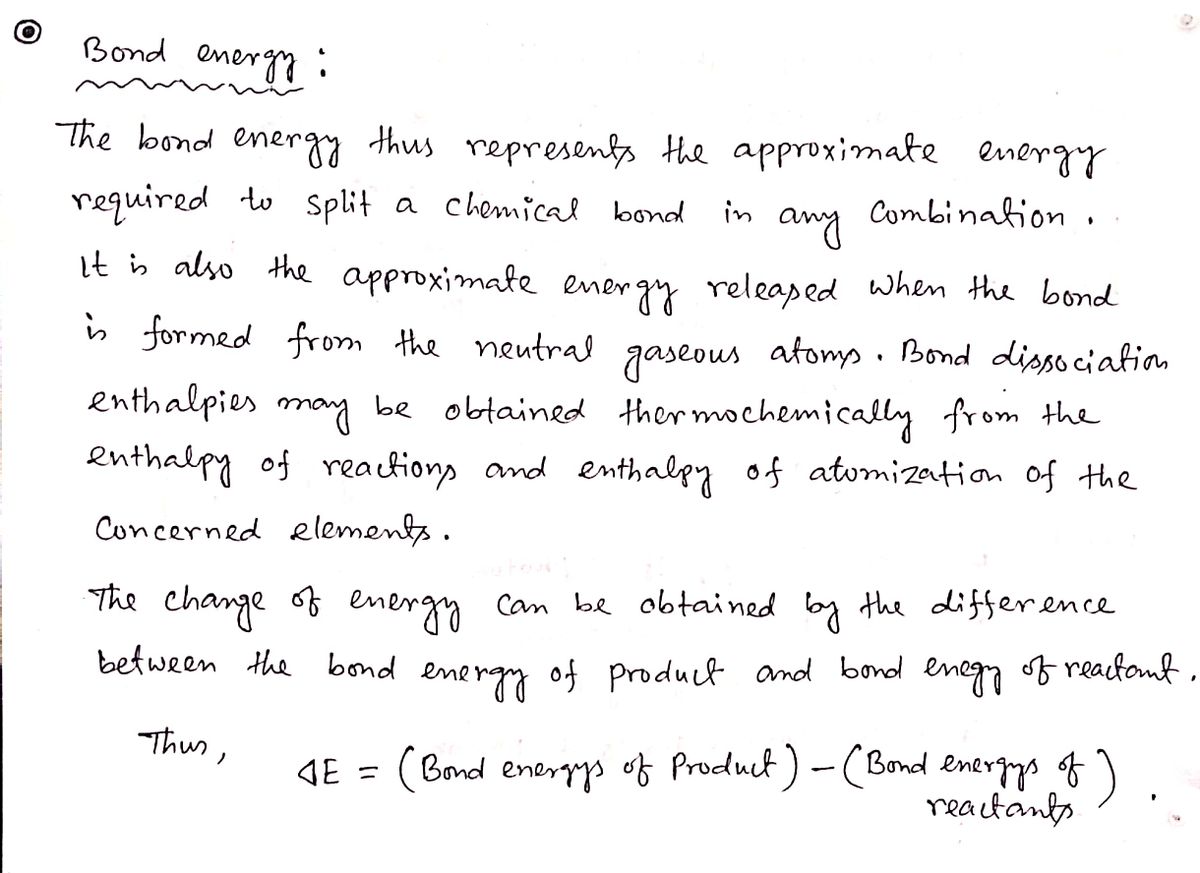 Bond energy :
The bond energy thus represents the approximate energy
required to split a chemical bond in any Combination .
It is also the approximate energy released when the bond
is formed from the neutral gaseous atoms . Bond dissociation
enthalpies may be obtained thermochemically from the
enthalpy of reactions and enthalpy of atomization of the
Concerned elements .
The change of energy can be obtained by the difference
between the bond energy of product and bond enegy of reactant .
Thus , ΔE = ( Bond energys of Product ) – ( Bond energys of
reactants ) .